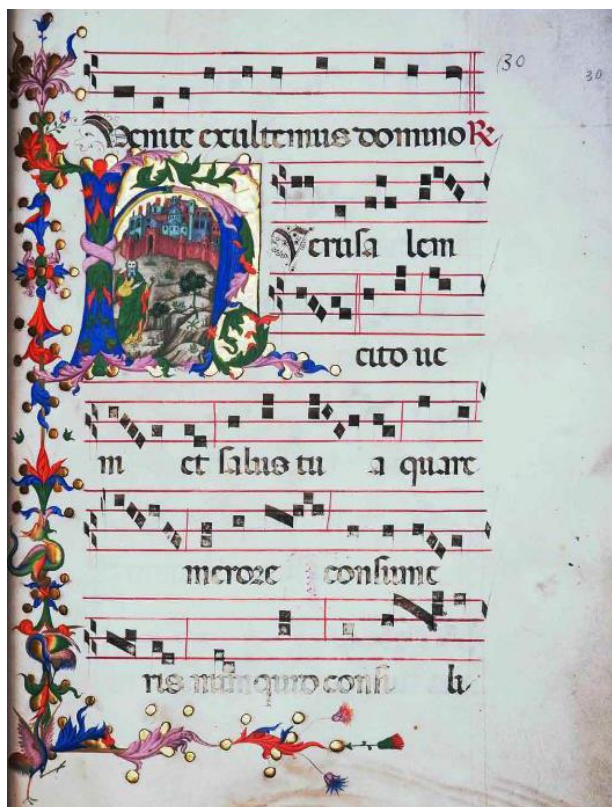 130
30
Venite exultemus domino R
H Yerusa lem
cito ue
ni et salus tu a quare
merore consume
ris numquid consi li